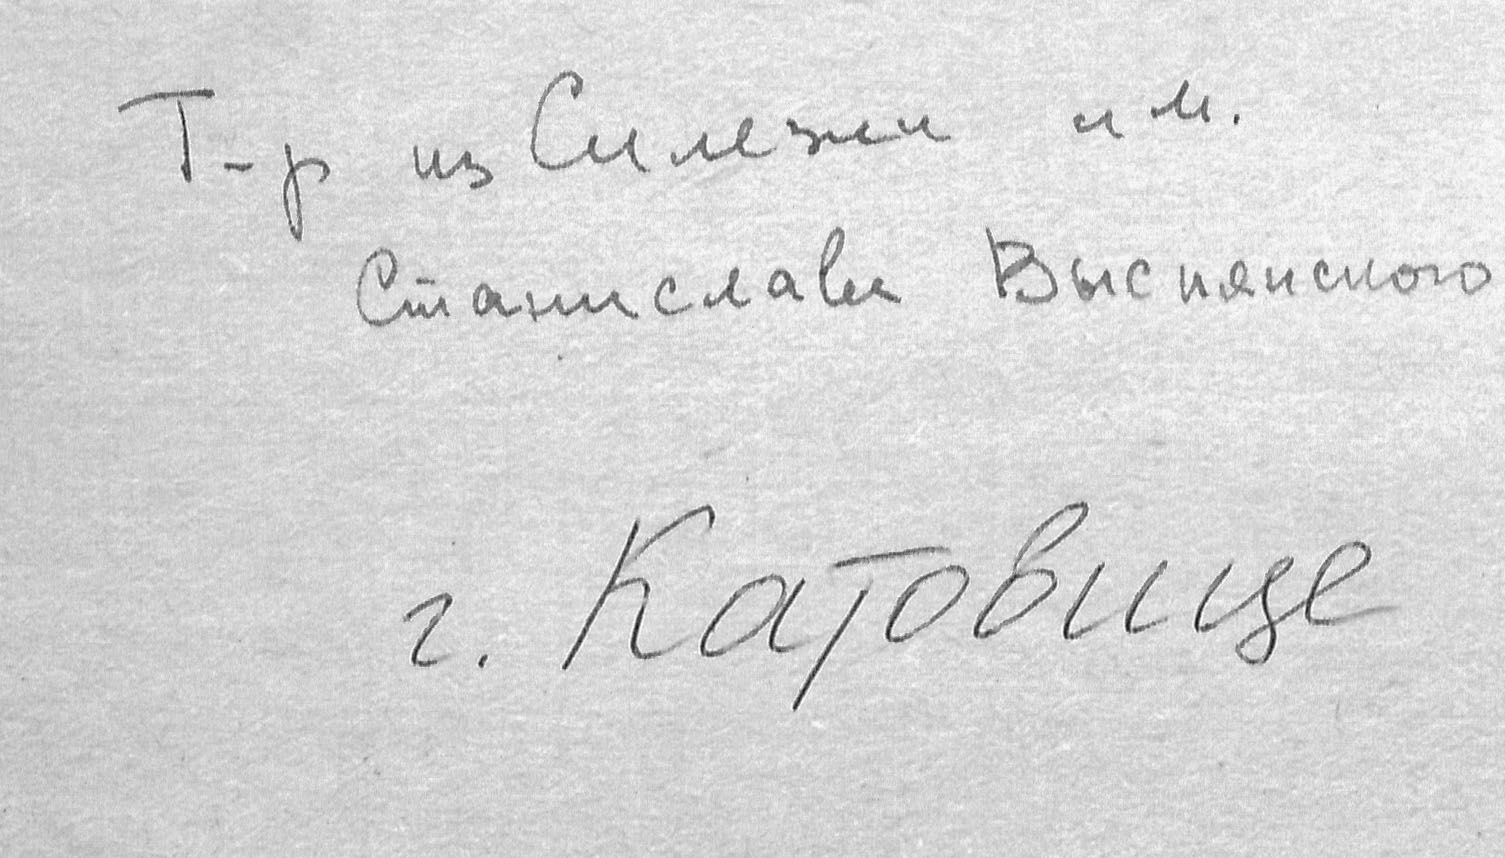 Т-р из Силезии им.
Станислава Выспянского
г. Катовице